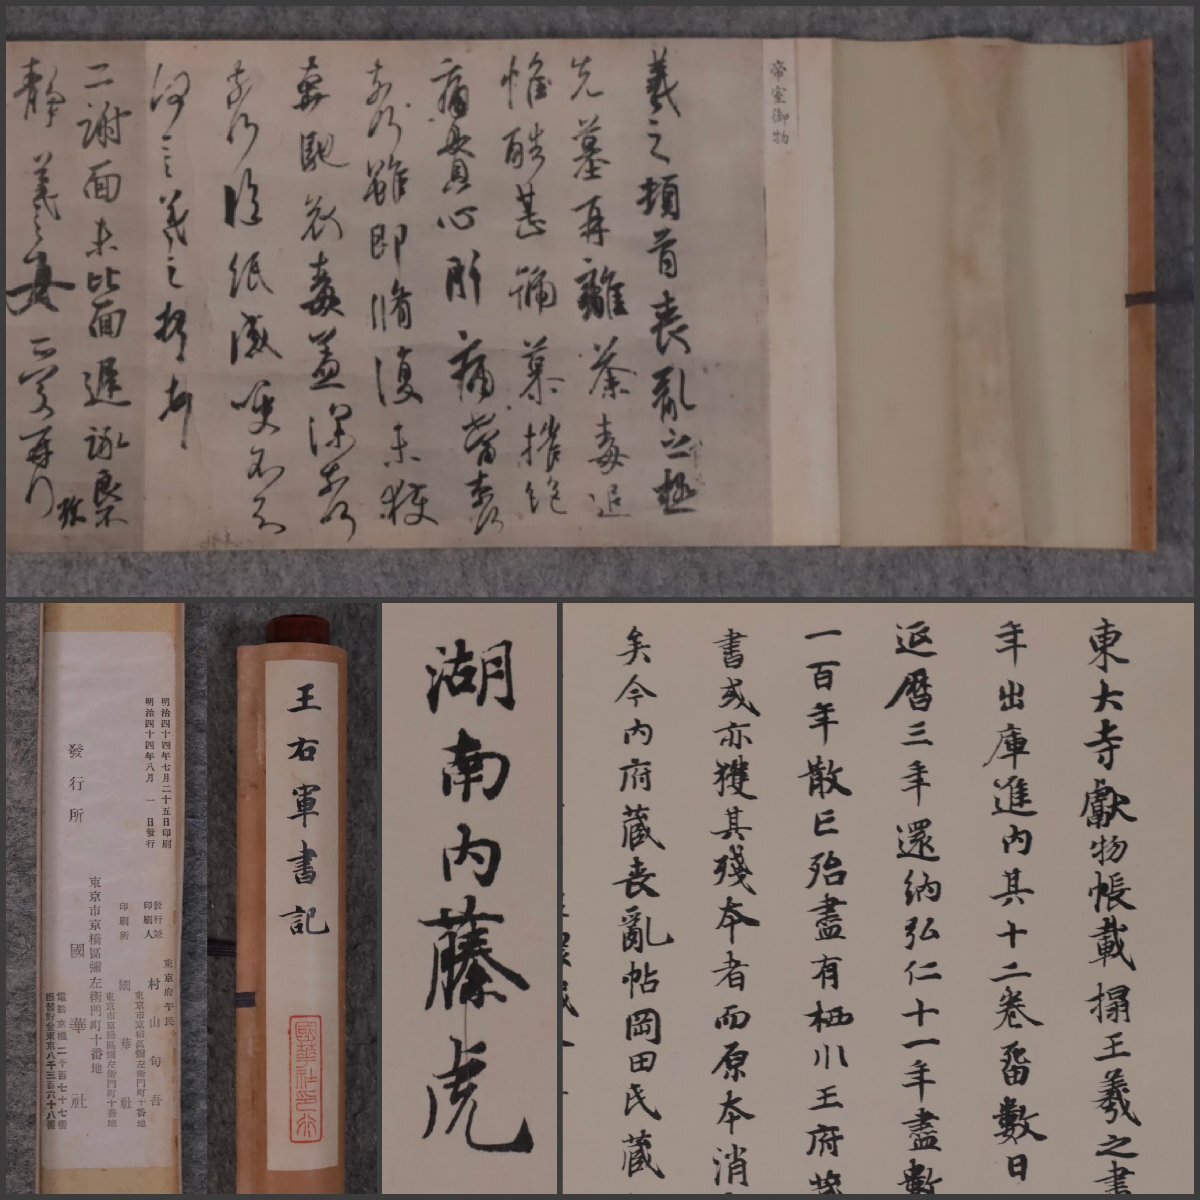 帝室御物
羲之頓首喪亂之極
先墓再離荼毒追
惟酷甚號慕摧絶
痛貫心肝痛當奈何
奈何雖即脩復未獲
奔馳哀毒益深奈何
奈何臨紙感哽不知
何言羲之頓首頓首
二謝面未比面遲詠良不
靜羲之女愛再拜
明治四十四年七月二十五日印刷
明治四十四年八月一日發行
東京府平民
發行兼印刷人 村山旬吾
東京市京橋區彌左衛門町十番地
印刷所 國華社
東京市京橋區彌左衛門町十番地
東京市京橋區彌左衛門町十番地
發行所 國華社
電話京橋二千百七十七番
振替貯金東京八千三百六十八番
王右軍書記
國華社印行
湖南内藤虎
東大寺獻物帳載搨王羲之書
年出庫進内其十二卷留數日
延暦三年還納弘仁十一年盡數
一百年散亡殆盡有栖川王府
書或亦獲其殘本者而原本消
矣今内府藏喪亂帖岡田氏藏